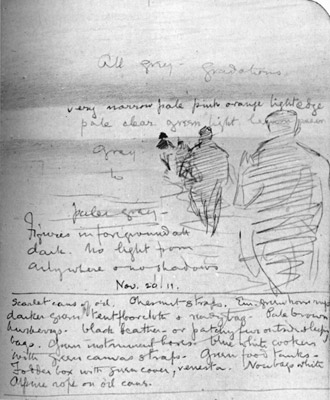 All grey - gradations.
very narrow pale pink orange light edge
pale clear green light
Grey
to
paler grey -
Figures in foreground all
dark. No light from
anywhere & no shadows
Nov. 20 11.
Scarlet cans of oil. Chestnut straps.
darker green tent floorcloth & ready bag. Pale brown
black leather or patchy fur outside sleep
bags. Green instrument boxes. blue white cookers
with green canvas straps. Green food tanks -
Fodder box with green cover, venesta. Nosebags white
Alpine rope on oil cans.